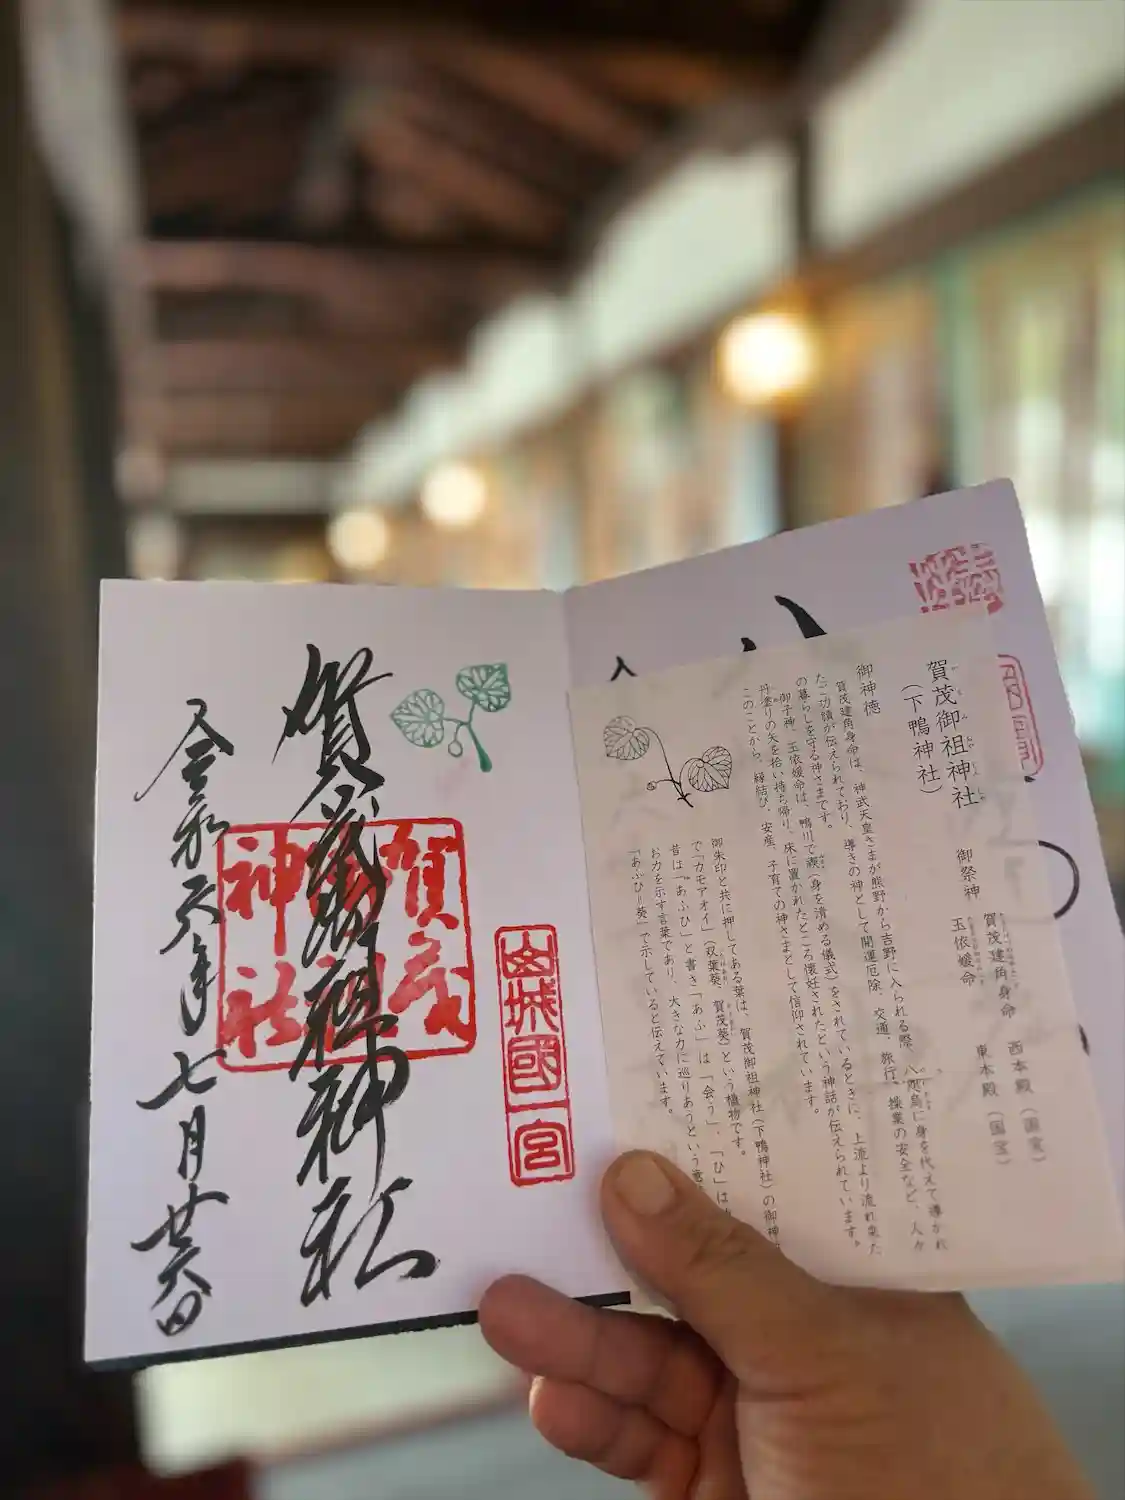 賀茂御祖神社
令和六年七月廿六日
賀茂御祖神社
山城國一宮
賀茂御祖神社
(下鴨神社)
御祭神
賀茂建角身命 西本殿(国宝)
玉依媛命 東本殿(国宝)
御神徳
賀茂建角身命は、神武天皇さまが熊野から吉野に入られる際、八咫烏に身を代えて導かれ
たご功績が伝えられており、導きの神として開運厄除、交通、旅行、操業の安全など、人々
の暮らしを守る神さまです。
御子神、玉依媛命は、鴨川で禊(身を清める儀式)をされているときに、上流より流れ来た
丹塗りの矢を拾い持ち帰り、床に置かれたところ懐妊されたという神話が伝えられています。
このことから、縁結び、安産、子育ての神さまとして信仰されています。
御朱印と共に押してある葉は、賀茂御祖神社(下鴨神社)の御神
で「カモアオイ」(双葉葵、賀茂葵)という植物です。
昔は「あふひ」と書き「あふ」は「会う」、「ひ」は
お力を示す言葉であり、大きな力に巡りあうという意
「あふひ=葵」で示していると伝えています。